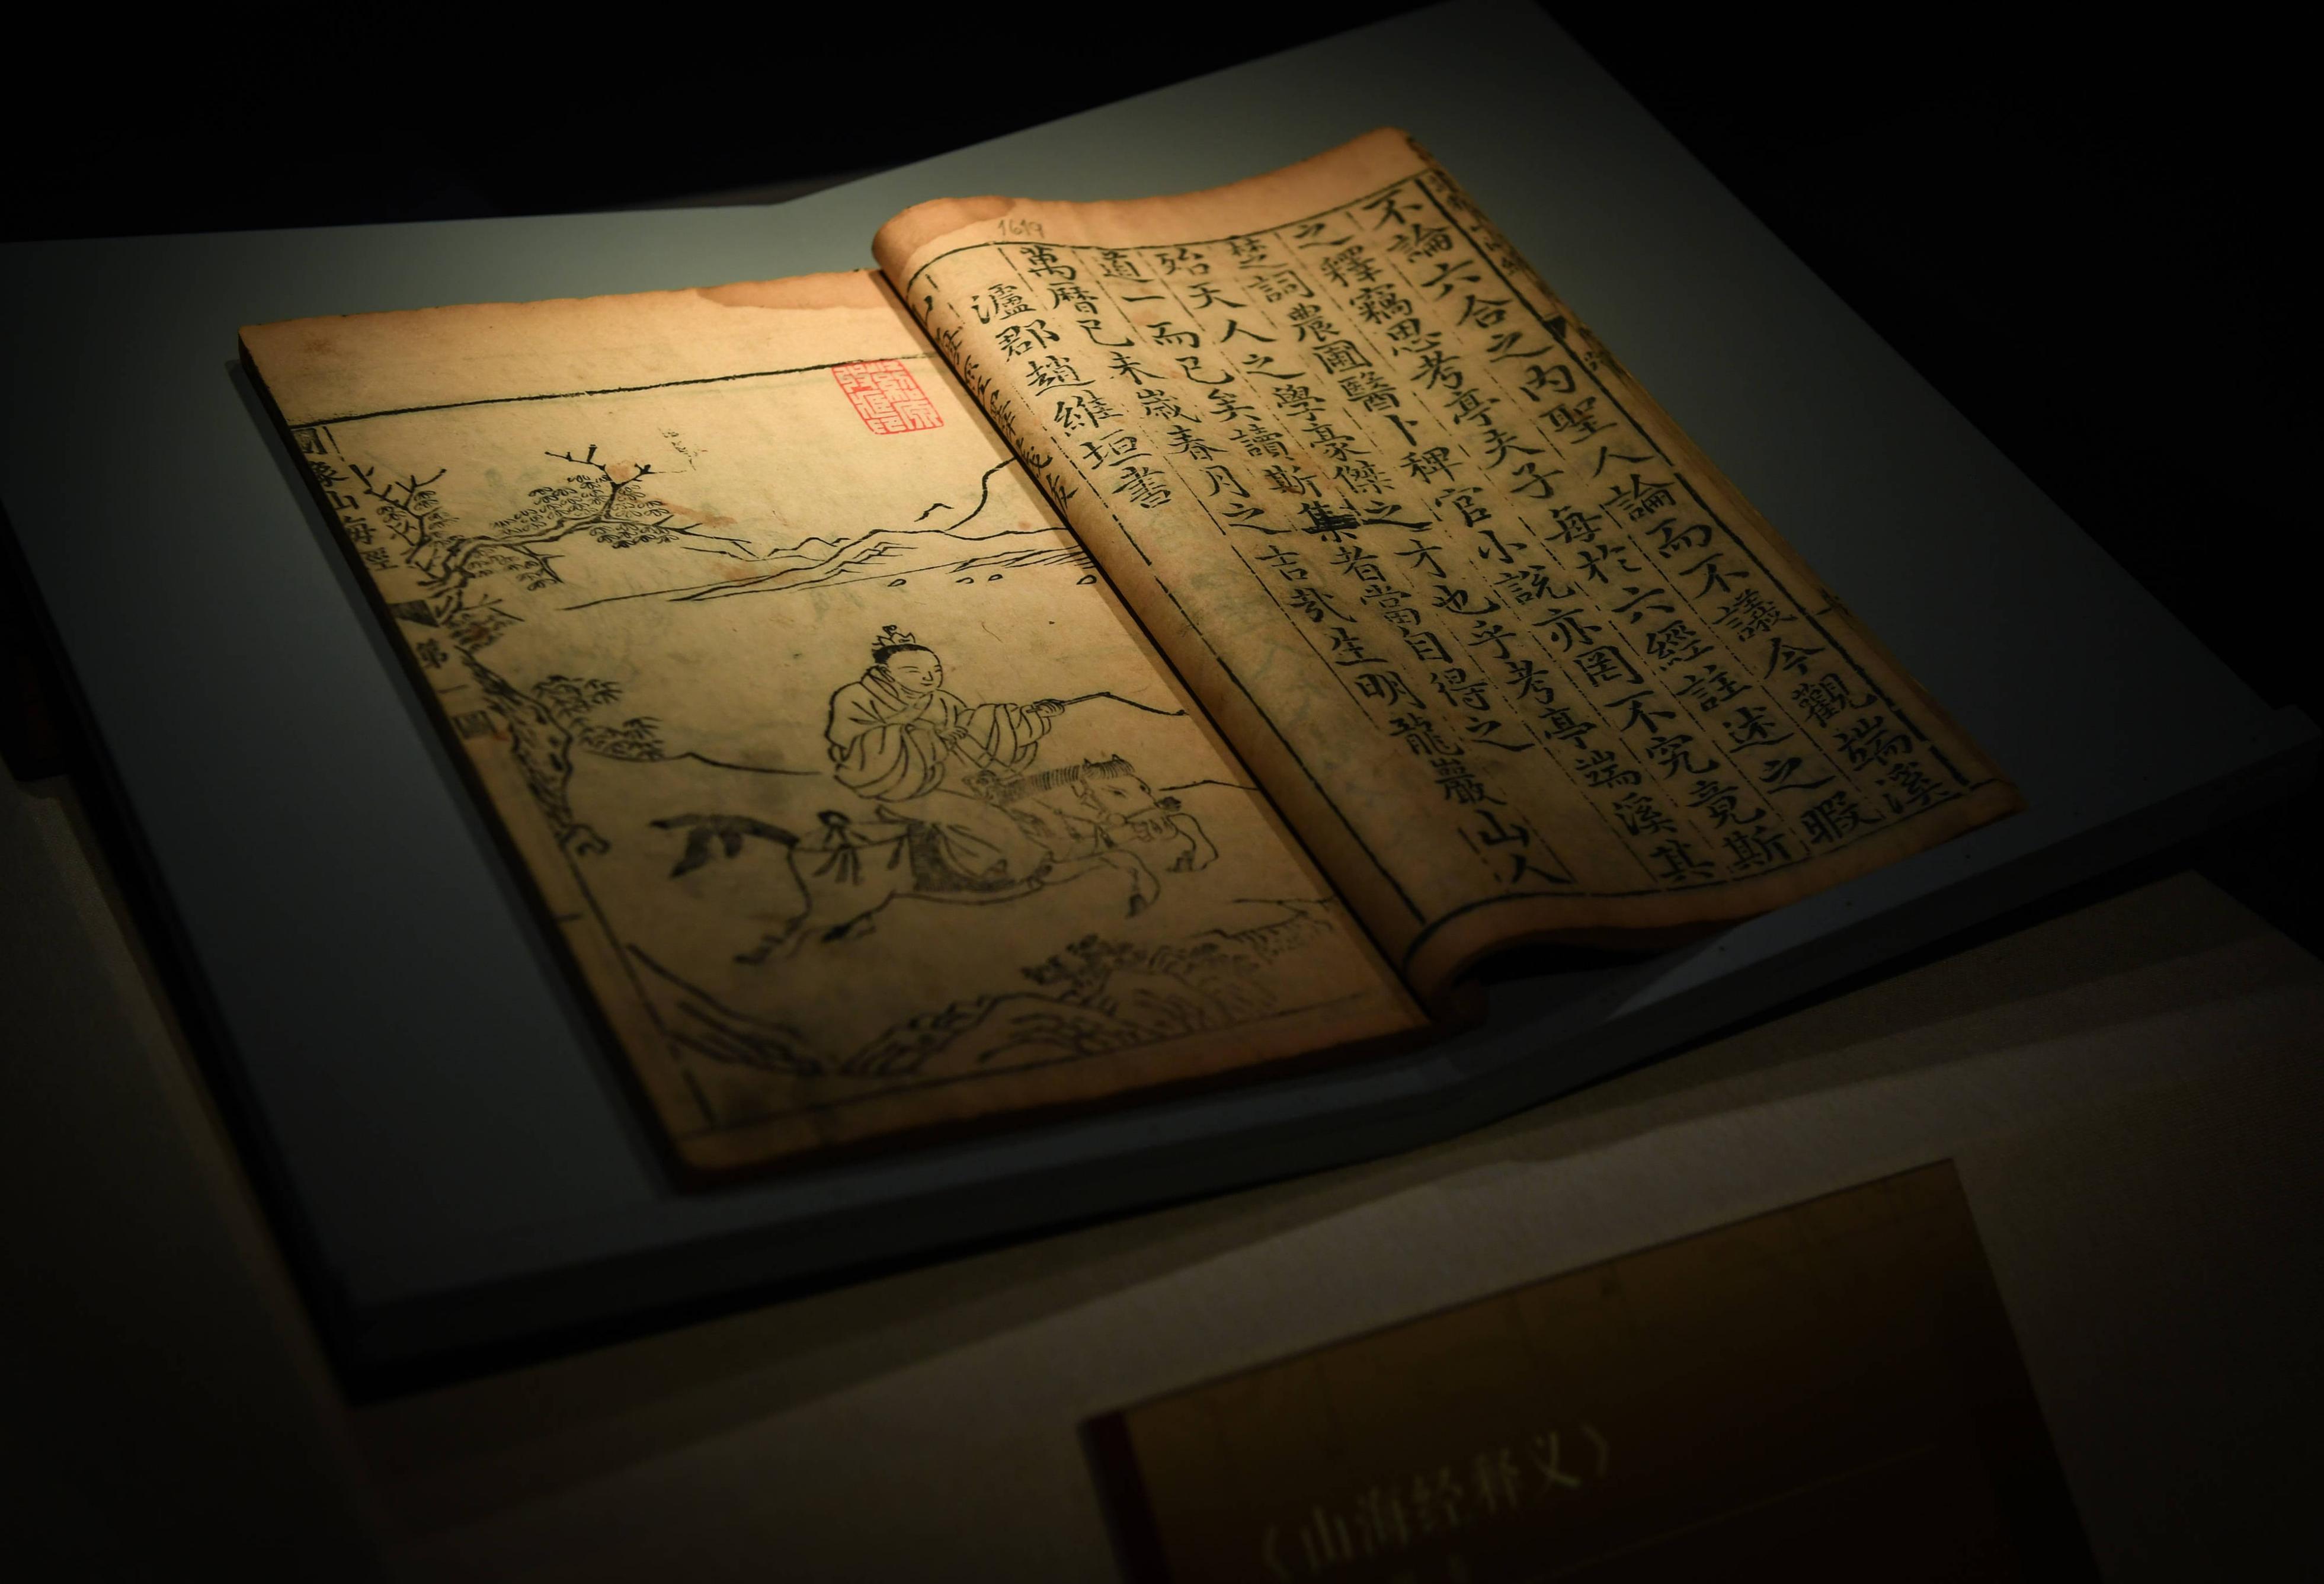 不論六合之内聖人論而不議今觀端溪
之釋竊思考亭夫子每於六經註述之暇
楚詞農圃醫卜稗官小說亦罔不究竟斯
殆天人之學豪傑之才也乎考亭端溪其
道一而已矣讀斯集者當自得之
萬曆已未歲春月之吉哉生明龍巖山人
瀘郡趙維垣書
1619
圖像山海經 第一圖
《山海经释义》